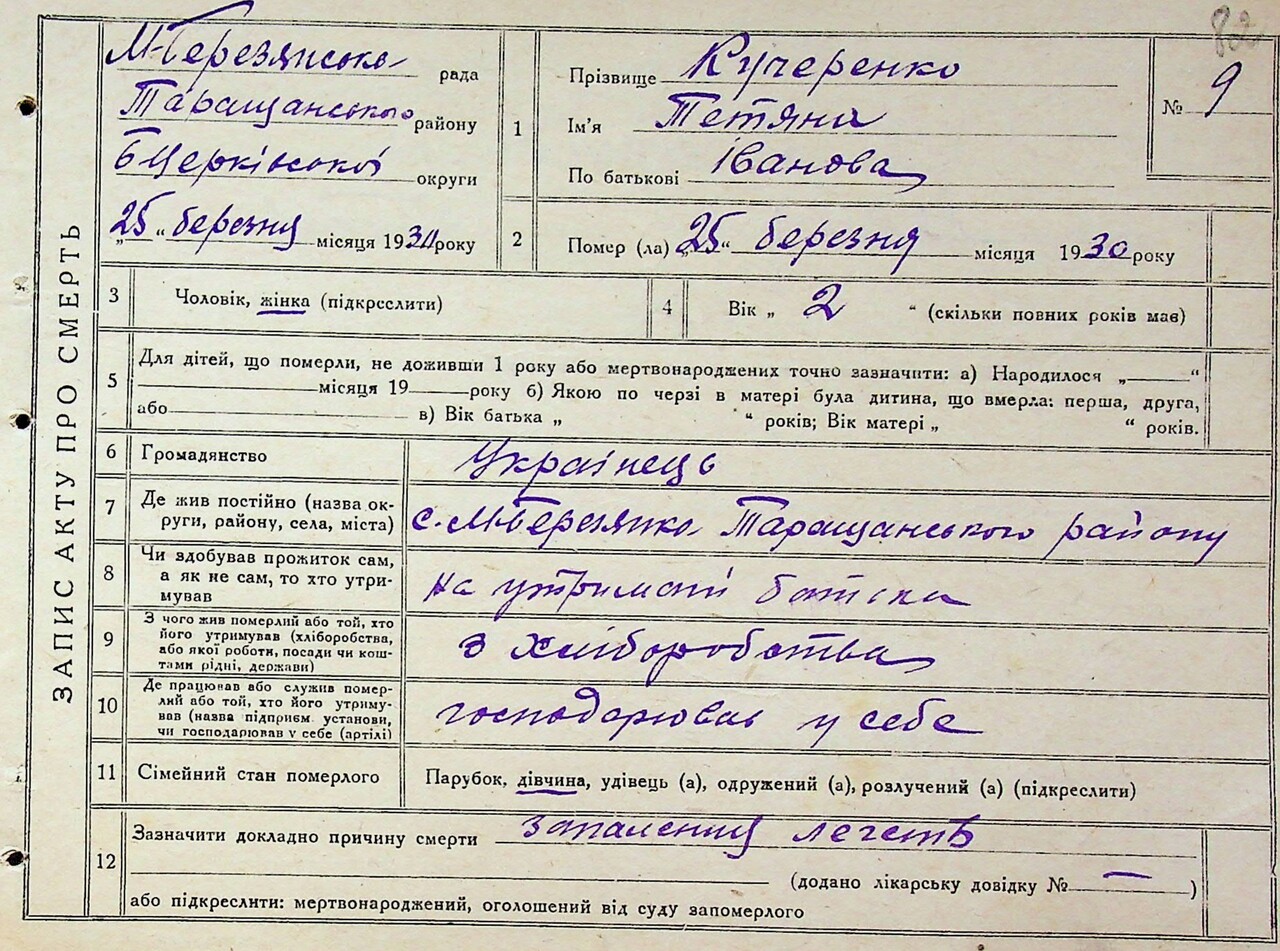 82
ЗАПИС АКТУ ПРО СМЕРТЬ
М-Березянська рада
Таращанського району
Б Церківської округи
„25“ березня місяця 1930 року
1
Прізвище Кучеренко
Ім'я Тетяна
По батькові Іванова
№ 9
2
Помер (ла) „25“ березня місяця 1930 року
3 Чоловік, жінка (підкреслити)
4 Вік „ 2 “ (скільки повних років мав)
5 Для дітей, що померли, не доживши 1 року або мертвонароджених точно зазначити: а) Народилося „ “
місяця 19 року б) Якою по черзі в матері була дитина, що вмерла: перша, друга,
або в) Вік батька „ “ років; Вік матері „ “ років.
6 Громадянство Українець
7 Де жив постійно (назва ок-
руги, району, села, міста) с. М-Березянка Таращанського району
8 Чи здобував прожиток сам,
а як не сам, то хто утри-
мував
на утриманні батька
9 З чого жив померлий або той, хто
його утримував (хліборобства,
або якої роботи, посади чи кош-
тами рідні, держави)
з хліборобства
10 Де працював або служив помер-
лий або той, хто його утриму-
вав (назва підприєм. установи,
чи господарював у себе (артілі)
господарював у себе
11 Сімейний стан померлого Парубок, дівчина, удівець (а), одружений (а), розлучений (а) (підкреслити)
12 Зазначити докладно причину смерти запалення легень
(додано лікарську довідку № — )
або підкреслити: мертвонароджений, оголошений від суду запомерлого